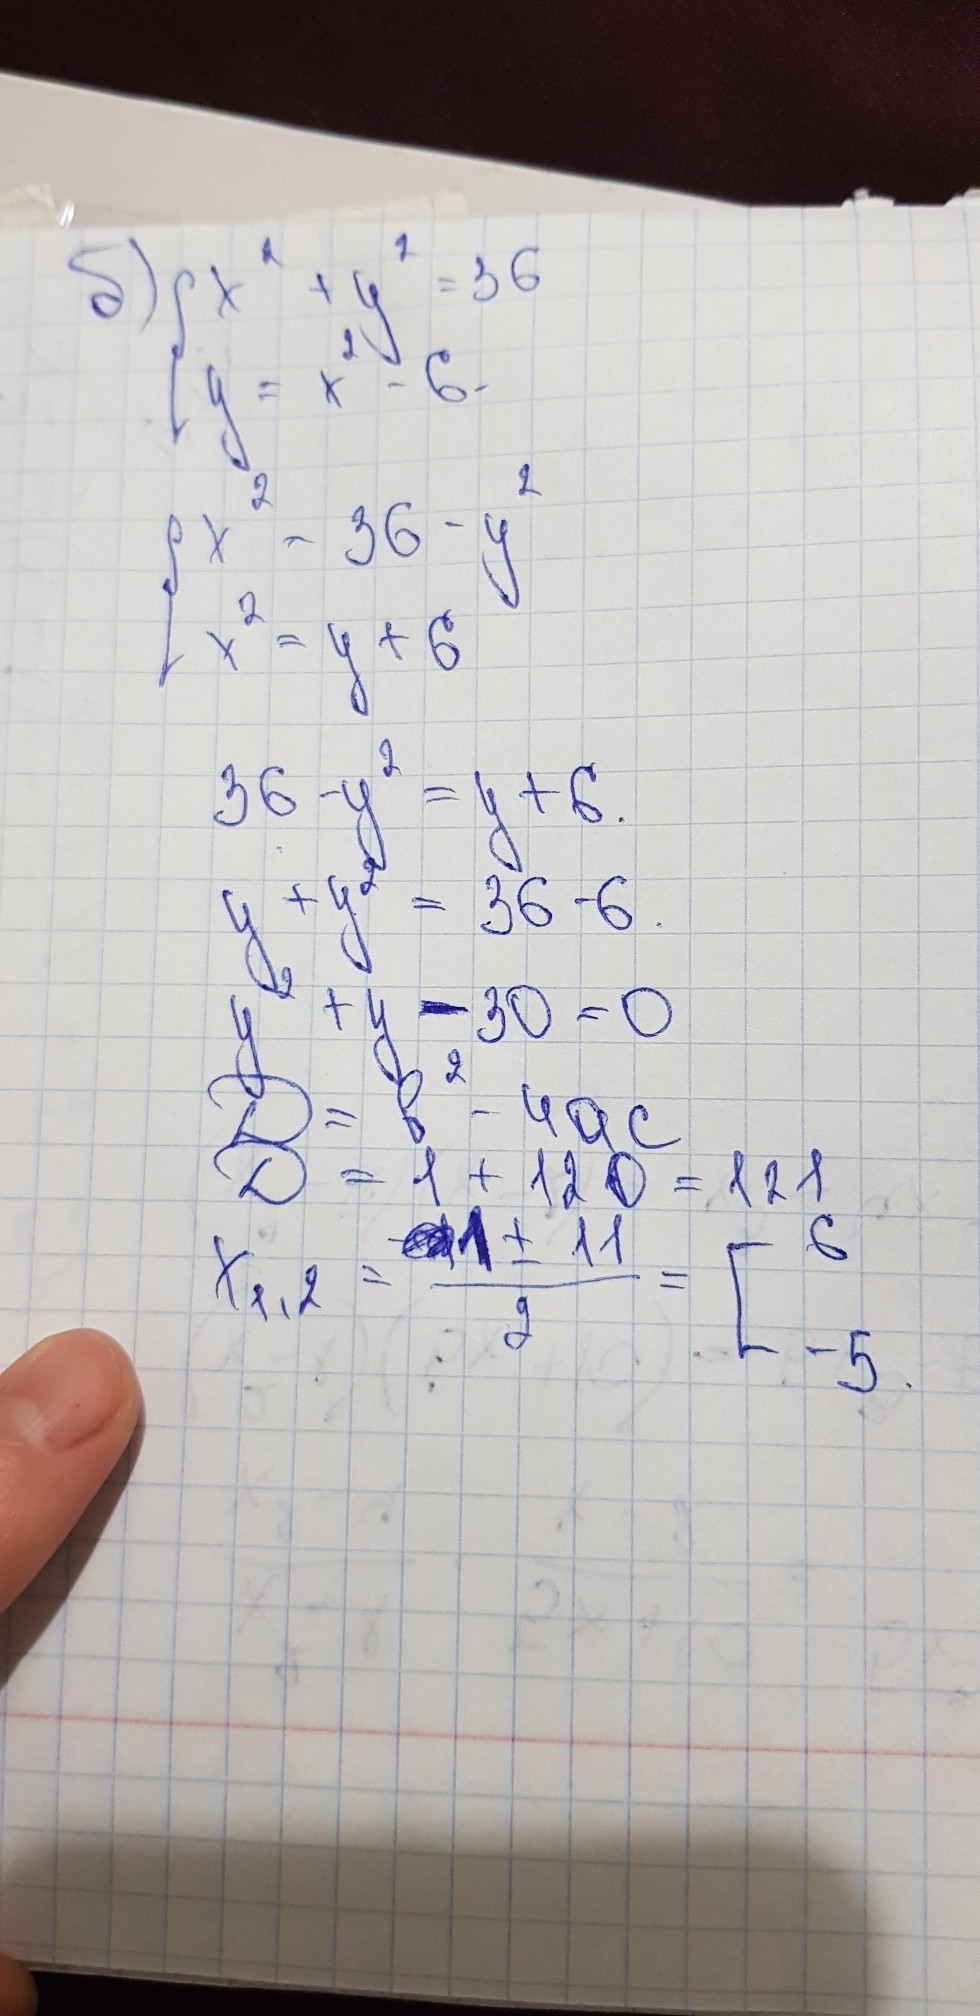 б) { x² + y² = 36
y = x² - 6.
{ x² = 36 - y²
x² = y + 6
36 - y² = y + 6.
y + y² = 36 - 6.
y² + y - 30 = 0
D = b² - 4ac
D = 1 + 120 = 121
x₁,₂ = (1 ± 11) / 2 = [ 6
-5.